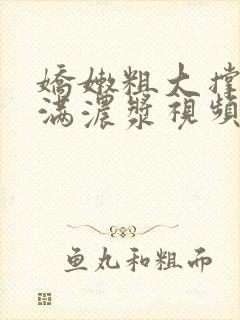 嬌嫩粗大撐
满濃漿視頻
鱼丸和粗而